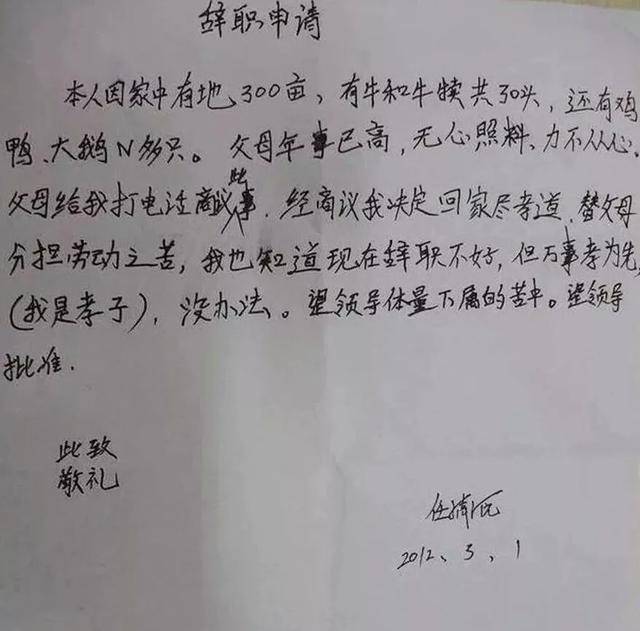 辞职申请
本人因家中有地300亩，有牛和牛犊共30头，还有鸡
鸭、大鹅N多只。父母年事已高，无心照料、力不从心、
父母给我打电话商议此事，经商议我决定回家尽孝道，替父母
分担劳动之苦，我也知道现在辞职不好，但万事孝为先
(我是孝子)，没办法。望领导体量下属的苦中。望领导
批准.
此致
敬礼
任
2012、3、1